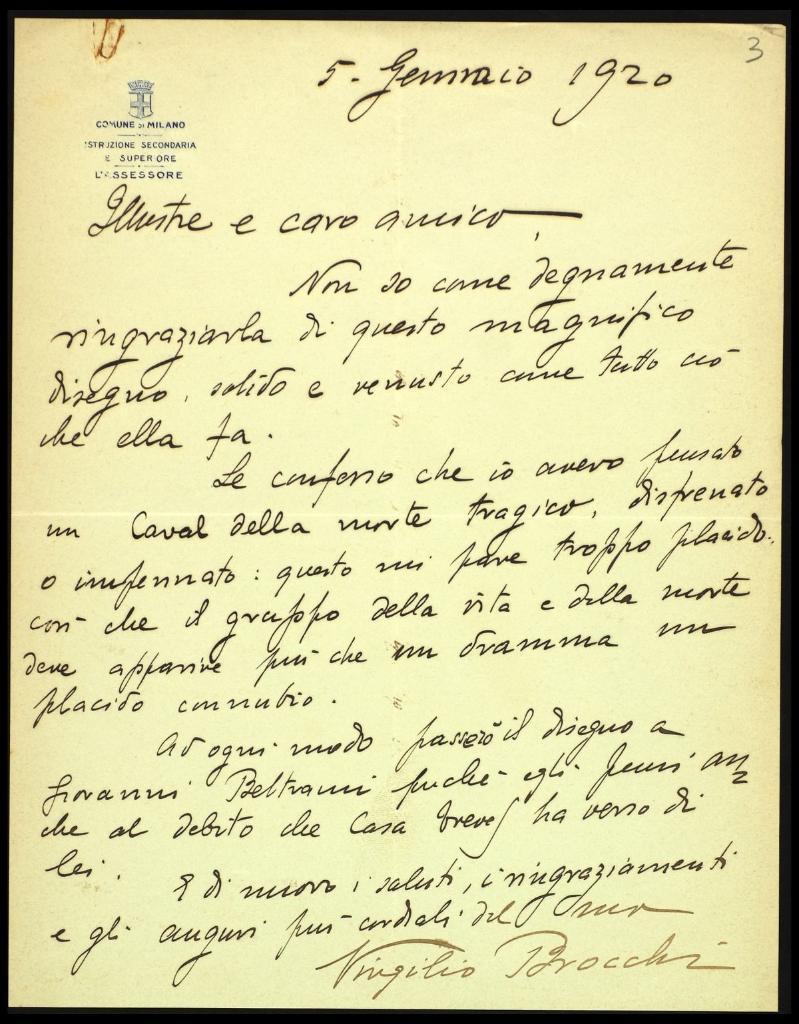 3
5. Gennaio 1920
COMUNE DI MILANO
ISTRUZIONE SECONDARIA
E SUPERIORE
L'ASSESSORE
Illustre e caro amico,
Non so come degnamente
ringraziarla di questo magnifico
disegno, solido e venusto come tutto ciò
che ella fa.
Le confesso che io avevo pensato
un Caval della morte tragico, disfrenato
o impennato: questo mi pare troppo placido:
così che il gruppo della vita e della morte
deve apparire più che un dramma un
placido connubio.
Ad ogni modo passerò il disegno a
Giovanni Beltrami puchè egli pensi an
che al debito che Casa Treves ha verso di
lei.
E di nuovo i saluti, i ringraziamenti
e gli auguri più cordiali del suo
Virgilio Brocchi